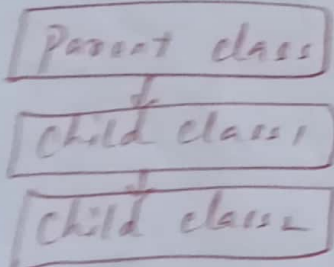 Parent class
Child class1
Child class2